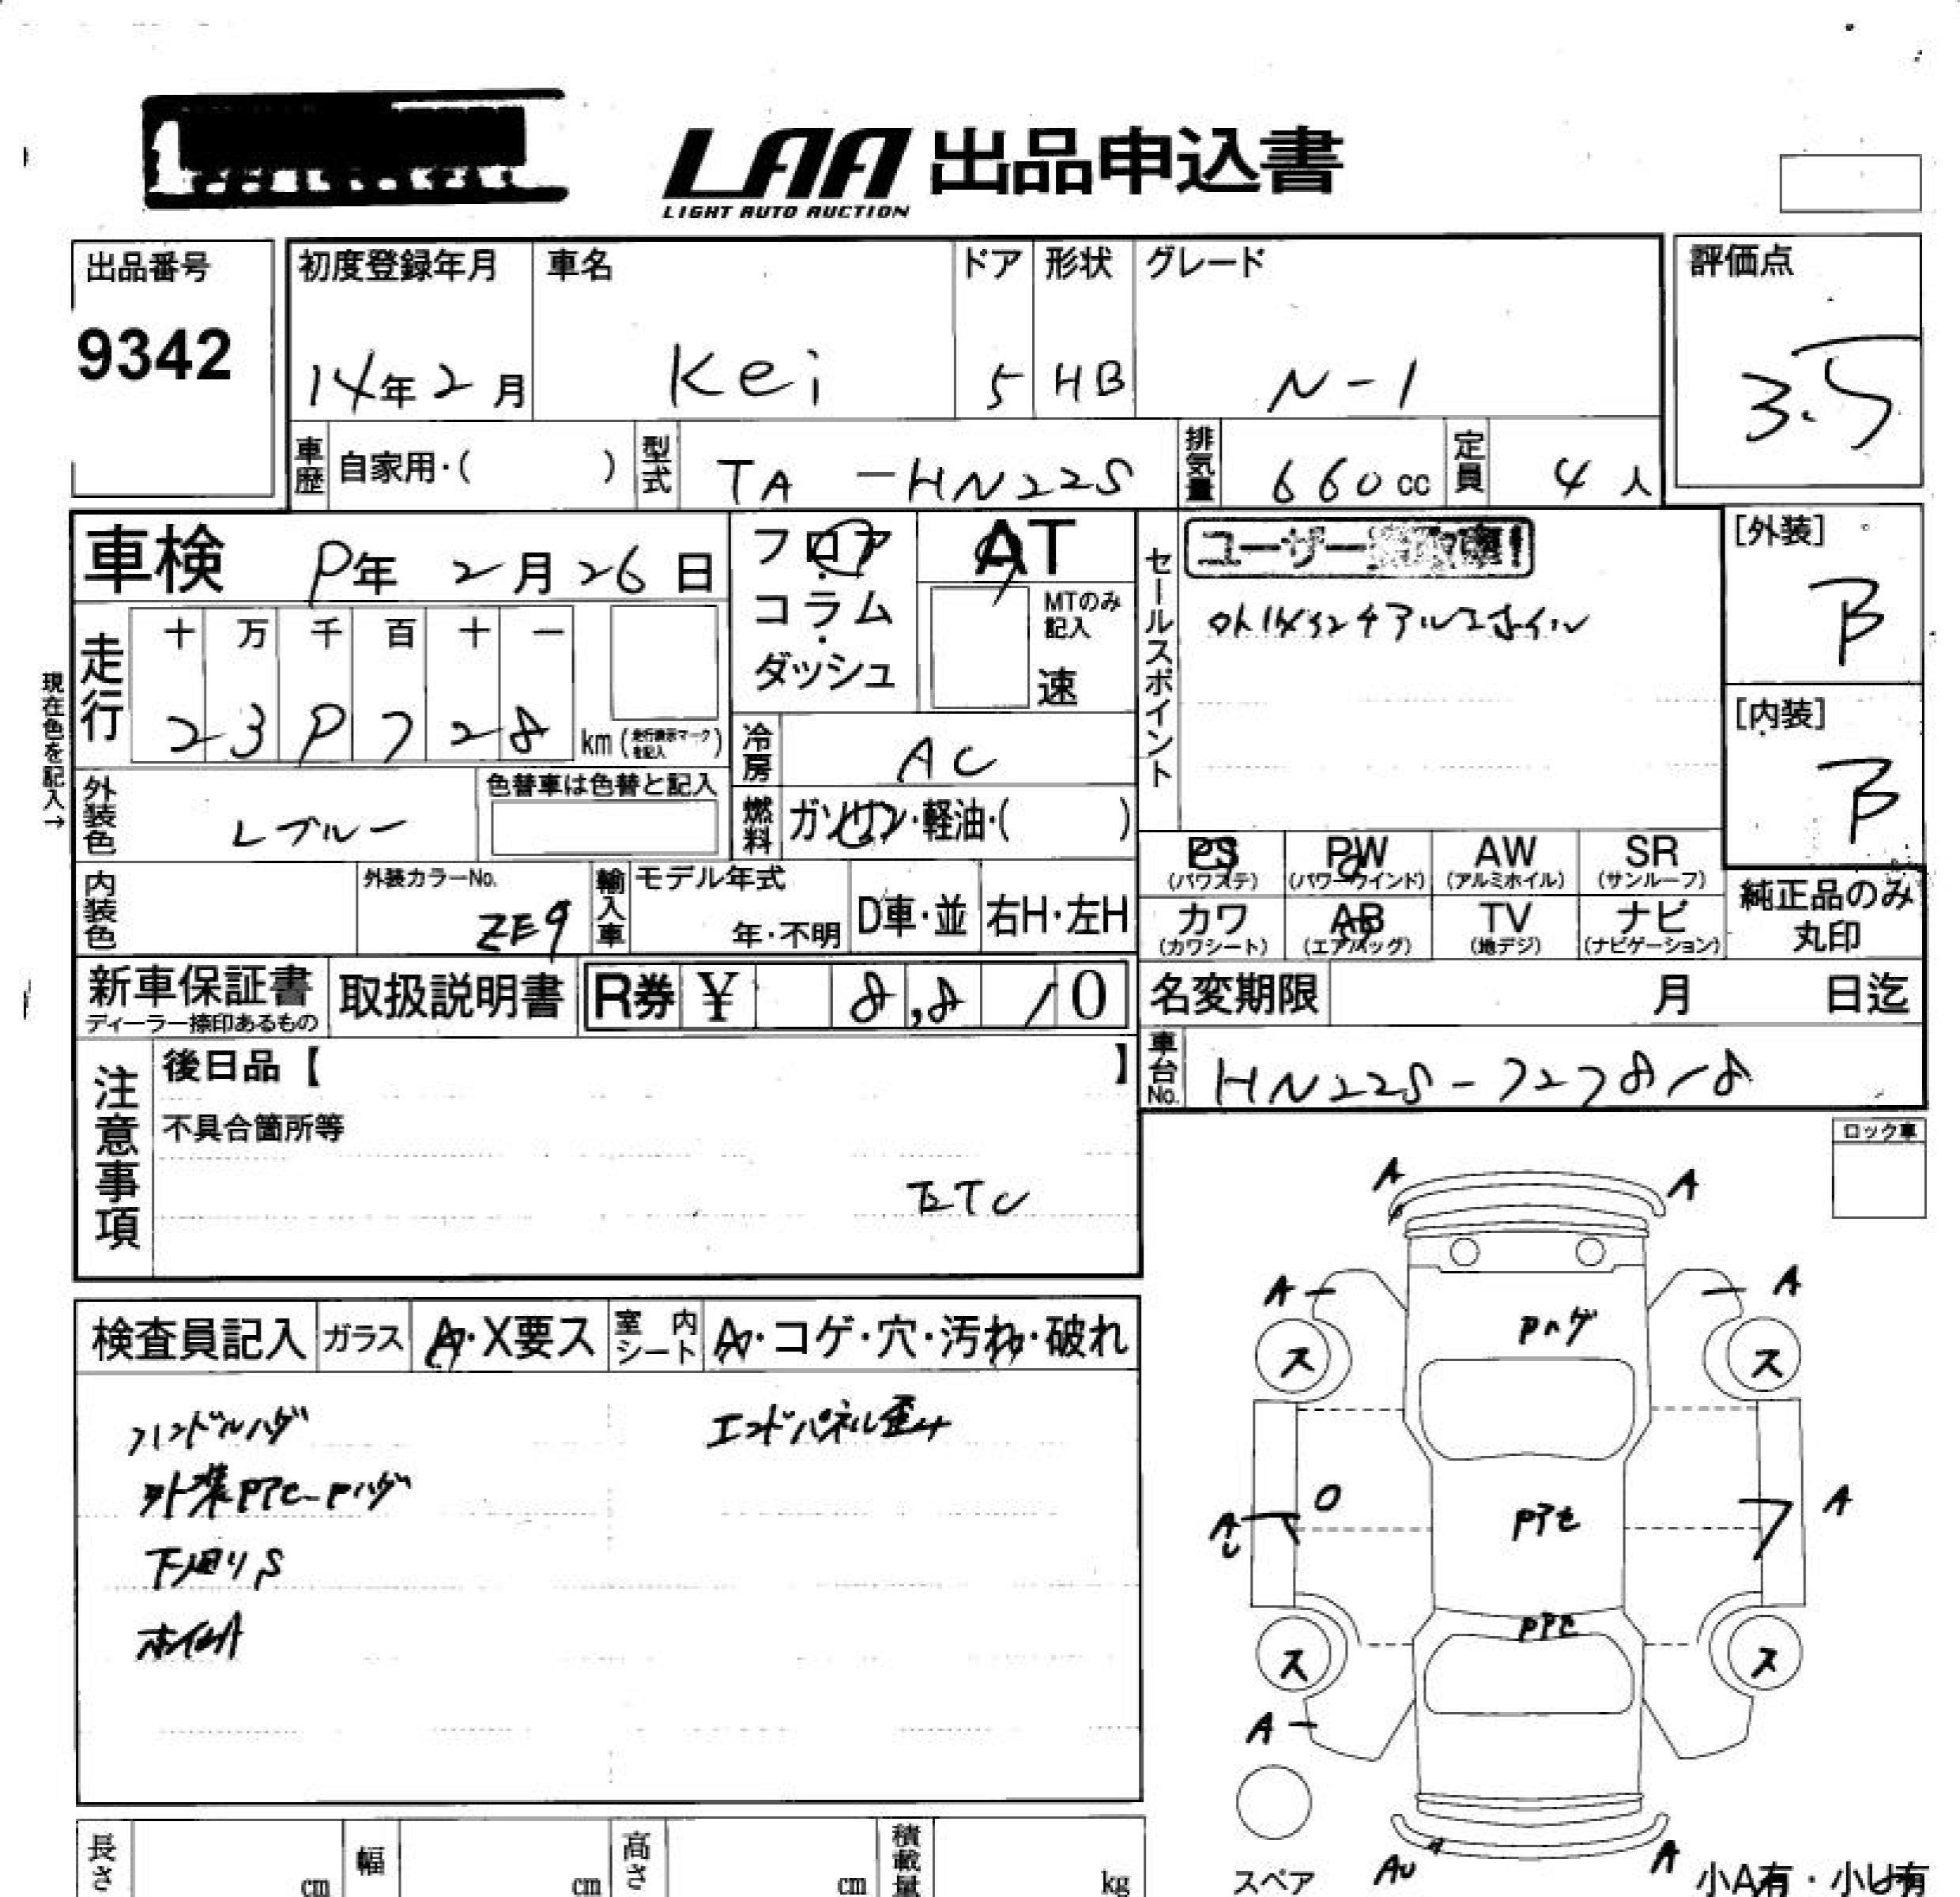 LAA 出品申込書
LIGHT AUTO AUCTION
出品番号
9342
初度登録年月
14年2月
車名
Kei
ドア
5
形状
HB
グレード
N-1
評価点
3.5
車歴
自家用・( )
型式
TA-HN22S
排気量
660cc
定員
4人
車検
9年 2月26日
フロア・コラム・ダッシュ
AT
MTのみ記入
速
セールスポイント
ユーザー
[外装]
B
[内装]
B
現在色を記入→
走行
十 万 千 百 十 一
2 3 9 7 2 8 km
冷房
AC
外装色
Lブルー
色替車は色替と記入
燃料
ガソリン・軽油・( )
内装色
外装カラーNo.
ZE9
輸入車
モデル年式
年・不明
D車・並
右H・左H
PS
(パワステ)
PW
(パワーウインド)
AW
(アルミホイル)
SR
(サンルーフ)
カワ
(カワシート)
AB
(エアバッグ)
TV
(地デジ)
ナビ
(ナビゲーション)
純正品のみ
丸印
新車保証書
ディーラー捺印あるもの
取扱説明書
R券 ¥ 8,810
名変期限
月 日迄
車台No.
HN22S-727818
注意事項
後日品【 】
不具合箇所等
ETC
ロック車
検査員記入
ガラス
A・X要ス
室内シート
A・コゲ・穴・汚れ・破れ
ハンドルハゲ
エンドパネル歪み
外装Pアセ Pハゲ
下廻りS
ホイルA
A A
A A
Pハゲ
ス ス
O
A
Pアセ
A
Pアセ
ス ス
A
スペア
AU
A
小A有・小U有
長さ
cm
幅
cm
高さ
cm
積載量
kg